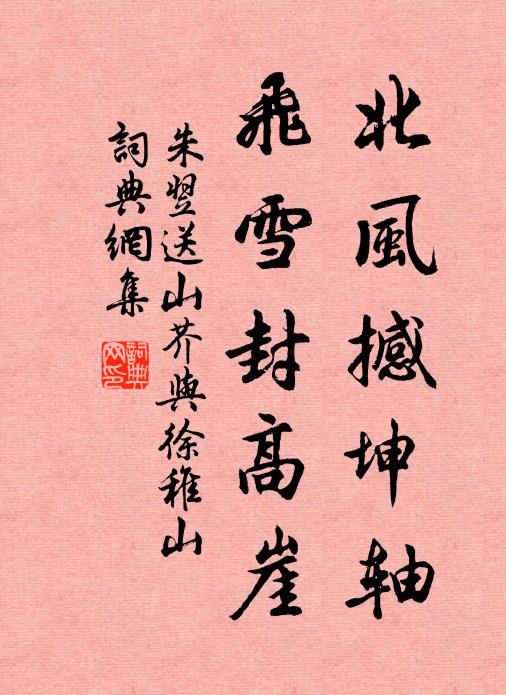 北風撼坤轴
飛雪封高崖
朱翌送山芥與徐稚山
詞典網集
詞典
网印